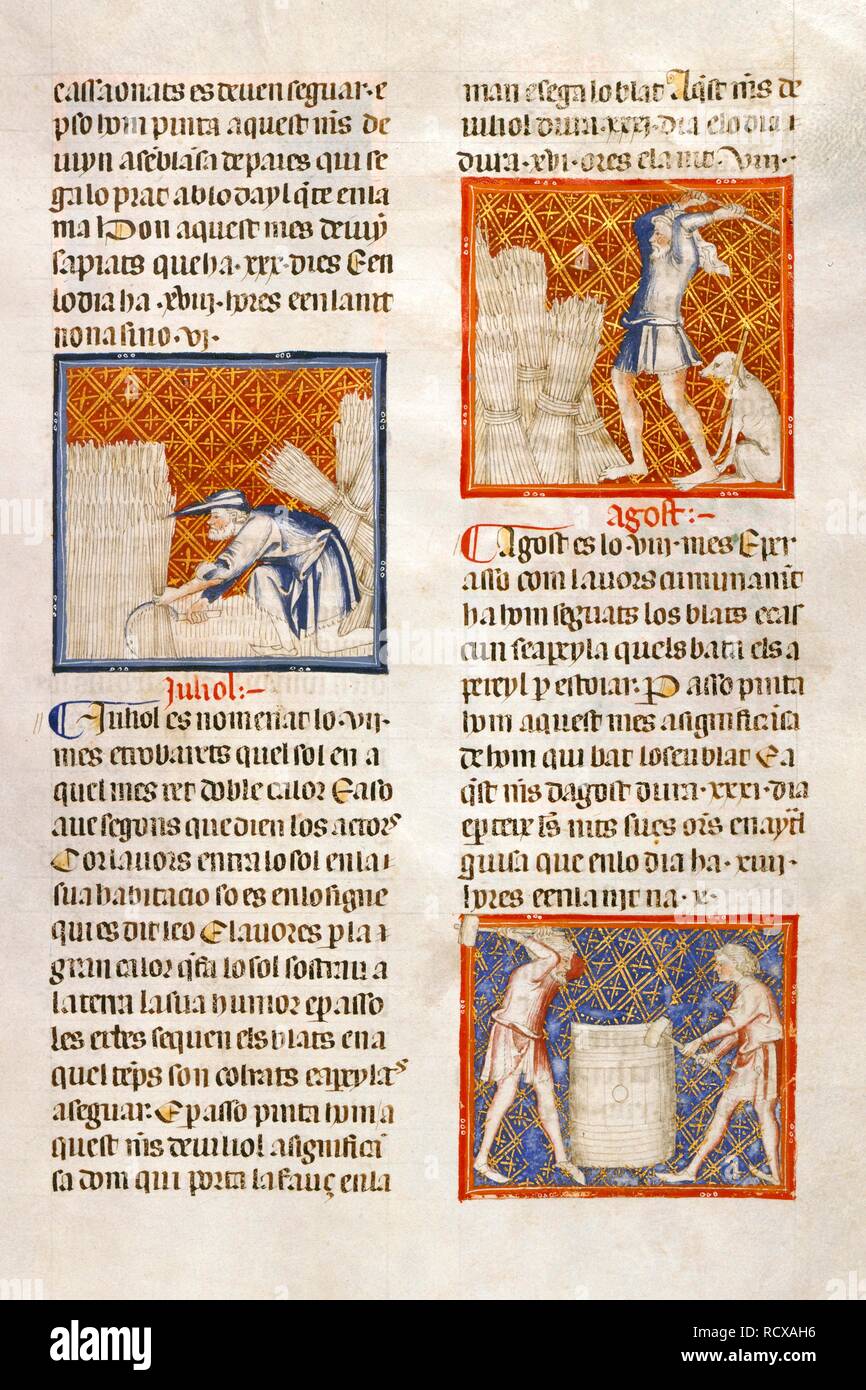 cassaonats es deuen seguar · e
p so hom pinta aquest mes de
iuyn a sēblāsa de paies qui se
ga lo prat ab lo dayl q̄ te en la
ma Don aquest mes de iuỹ
sapiats que ha · xxx · dies E en
lo dia ha · xviij · hores e en la nit
non a sino · vj ·
Juliol :~
Juliol es nomenat lo · vij ·
mes e trobarets quel sol en a
quel mes ret doble calor E aso
aue segons que dien los actors
Cor lauors entra lo sol en la i
sua habitacio so es en lo signe
qui es dit leo E lauores p la
gran calor q̄ fa lo sol sostrau a
la terra la sua humor e p asso
les erbes sequen els blats en a
quel tēps son colrats e apeylats
a seguar · E p asso pinta hom a
quest mes de iuliol a significā
sa dom qui porta la fauç en la
man e sega lo blat Aq̄st mes de
iuliol dura · xxxj · dia e lo dia
dura · xvi · ores e la nit · viij ·
agost :~
Agost es lo · viij · mes E per
asso com lauors cumunamēt
ha hom seguats los blats e cas
cun se apeyla quels bata els a
pereyl p estoiar · E p asso pinta
hom aquest mes a significāsa
de hom qui bat lo seu blat E a
q̄st mes dagost dura · xxxi · dia
guisa que en lo dia ha · xiiij ·
hores e en la nit na · x ·
alamy
Image ID: RCXAH6
www.alamy.com